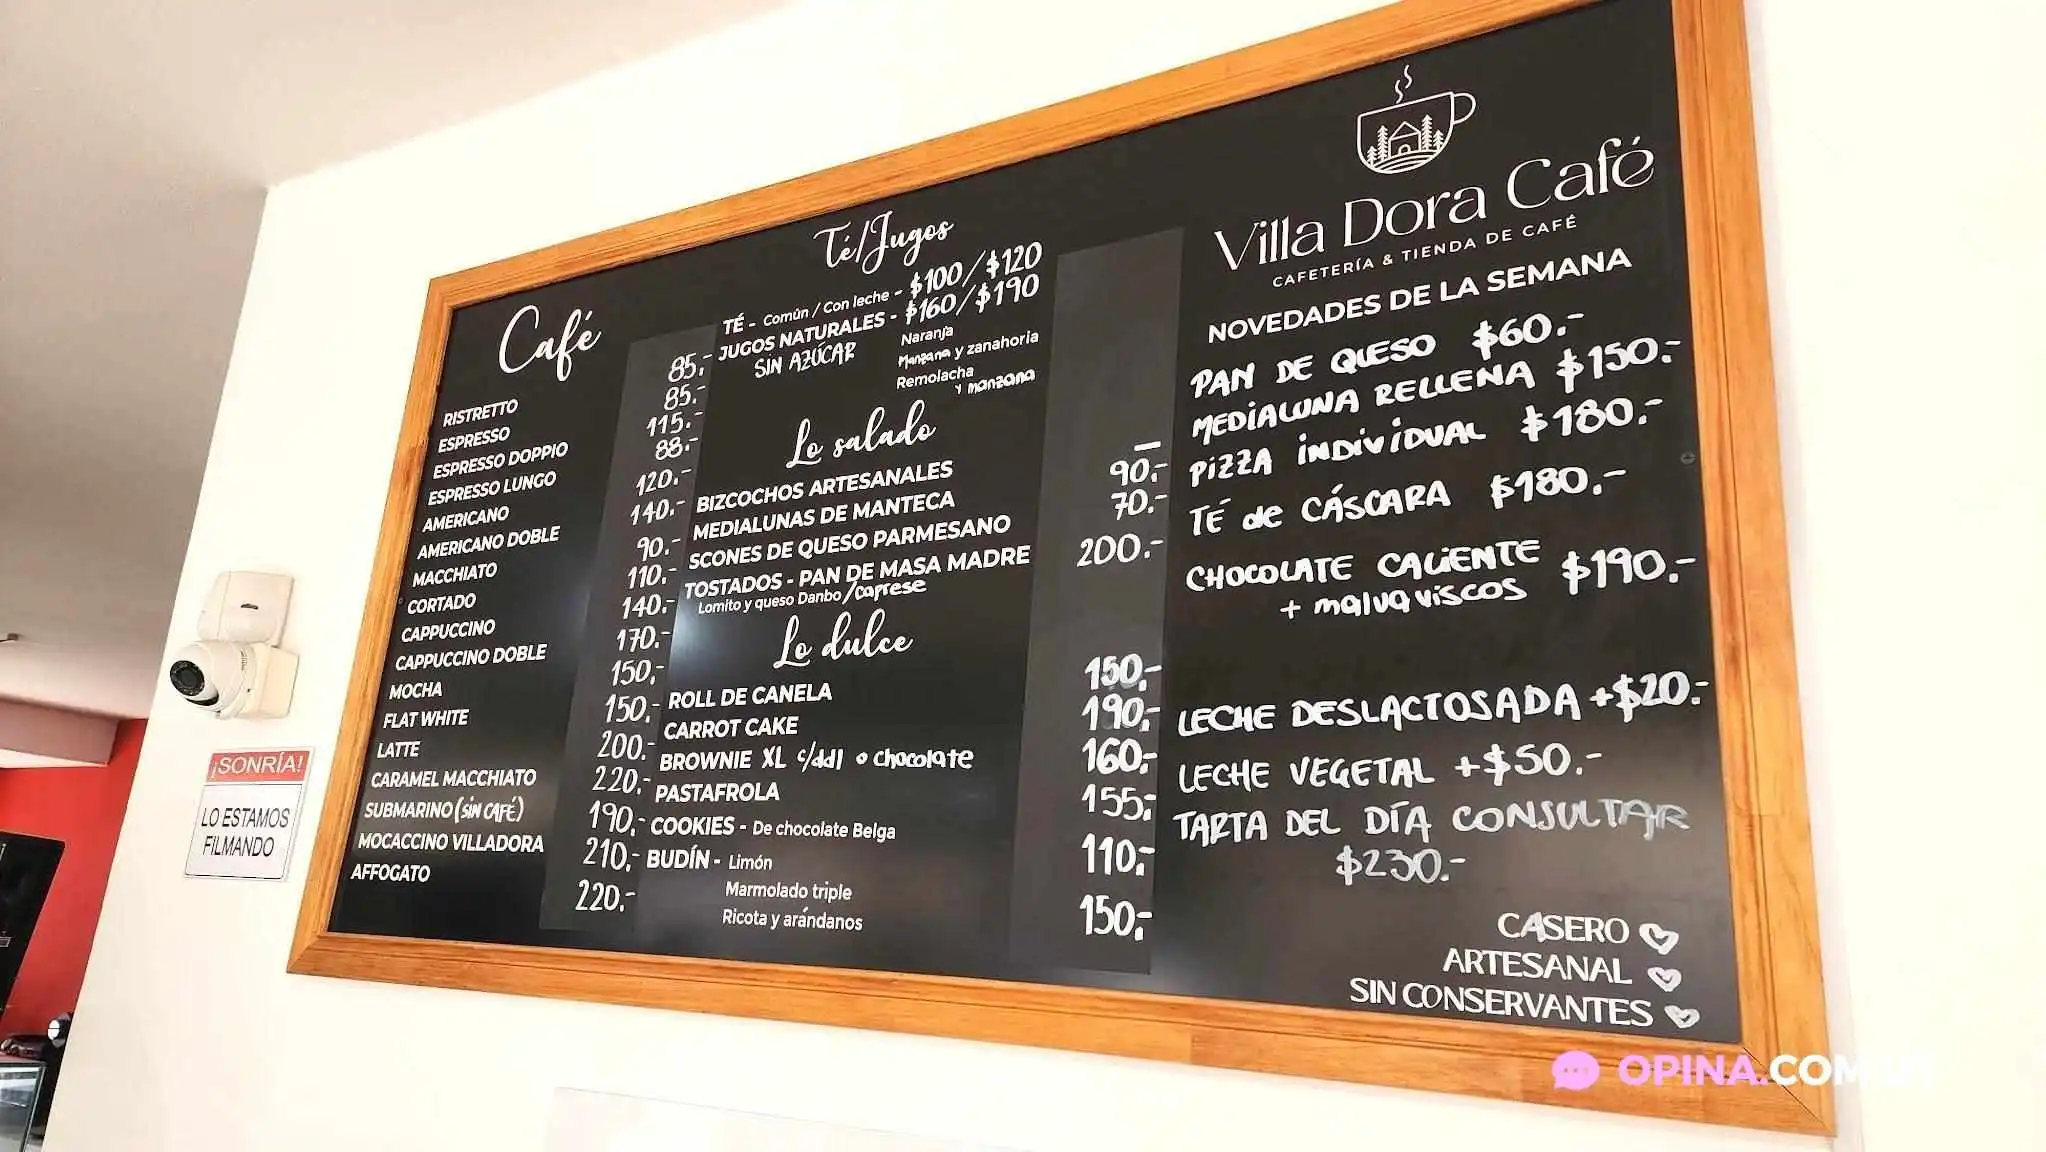 Café
RISTRETTO 85.-
ESPRESSO 85.-
ESPRESSO DOPPIO 115.-
ESPRESSO LUNGO 88.-
AMERICANO 120.-
AMERICANO DOBLE 140.-
MACCHIATO 90.-
CORTADO 110.-
CAPPUCCINO 140.-
CAPPUCCINO DOBLE 170.-
MOCHA 150.-
FLAT WHITE 150.-
LATTE 200.-
CARAMEL MACCHIATO 220.-
SUBMARINO (SIN CAFÉ) 190.-
MOCACCINO VILLADORA 210.-
AFFOGATO 220.-
Té/Jugos
TÉ - Común / Con leche - $100/$120
JUGOS NATURALES - $160/$190
SIN AZÚCAR
Naranja
Manzana y zanahoria
Remolacha
y manzana
Lo salado
BIZCOCHOS ARTESANALES —
MEDIALUNAS DE MANTECA 90.-
SCONES DE QUESO PARMESANO 70.-
TOSTADOS - PAN DE MASA MADRE 200.-
Lomito y queso Danbo/caprese
Lo dulce
ROLL DE CANELA 150.-
CARROT CAKE 190.-
BROWNIE XL c/ddl o chocolate 160.-
PASTAFROLA 155.-
COOKIES - De chocolate Belga 110.-
BUDÍN - Limón 150.-
Marmolado triple
Ricota y arándanos
Villa Dora Café
CAFETERÍA & TIENDA DE CAFÉ
NOVEDADES DE LA SEMANA
PAN DE QUESO $60.-
MEDIALUNA RELLENA $150.-
PIZZA INDIVIDUAL $180.-
TÉ de CÁSCARA $180.-
CHOCOLATE CALIENTE $190.-
+ malvaviscos
LECHE DESLACTOSADA +$20.-
LECHE VEGETAL +$50.-
TARTA DEL DÍA CONSULTAR
$230.-
CASERO
ARTESANAL
SIN CONSERVANTES
¡SONRÍA!
LO ESTAMOS
FILMANDO
OPINA.COM.UY